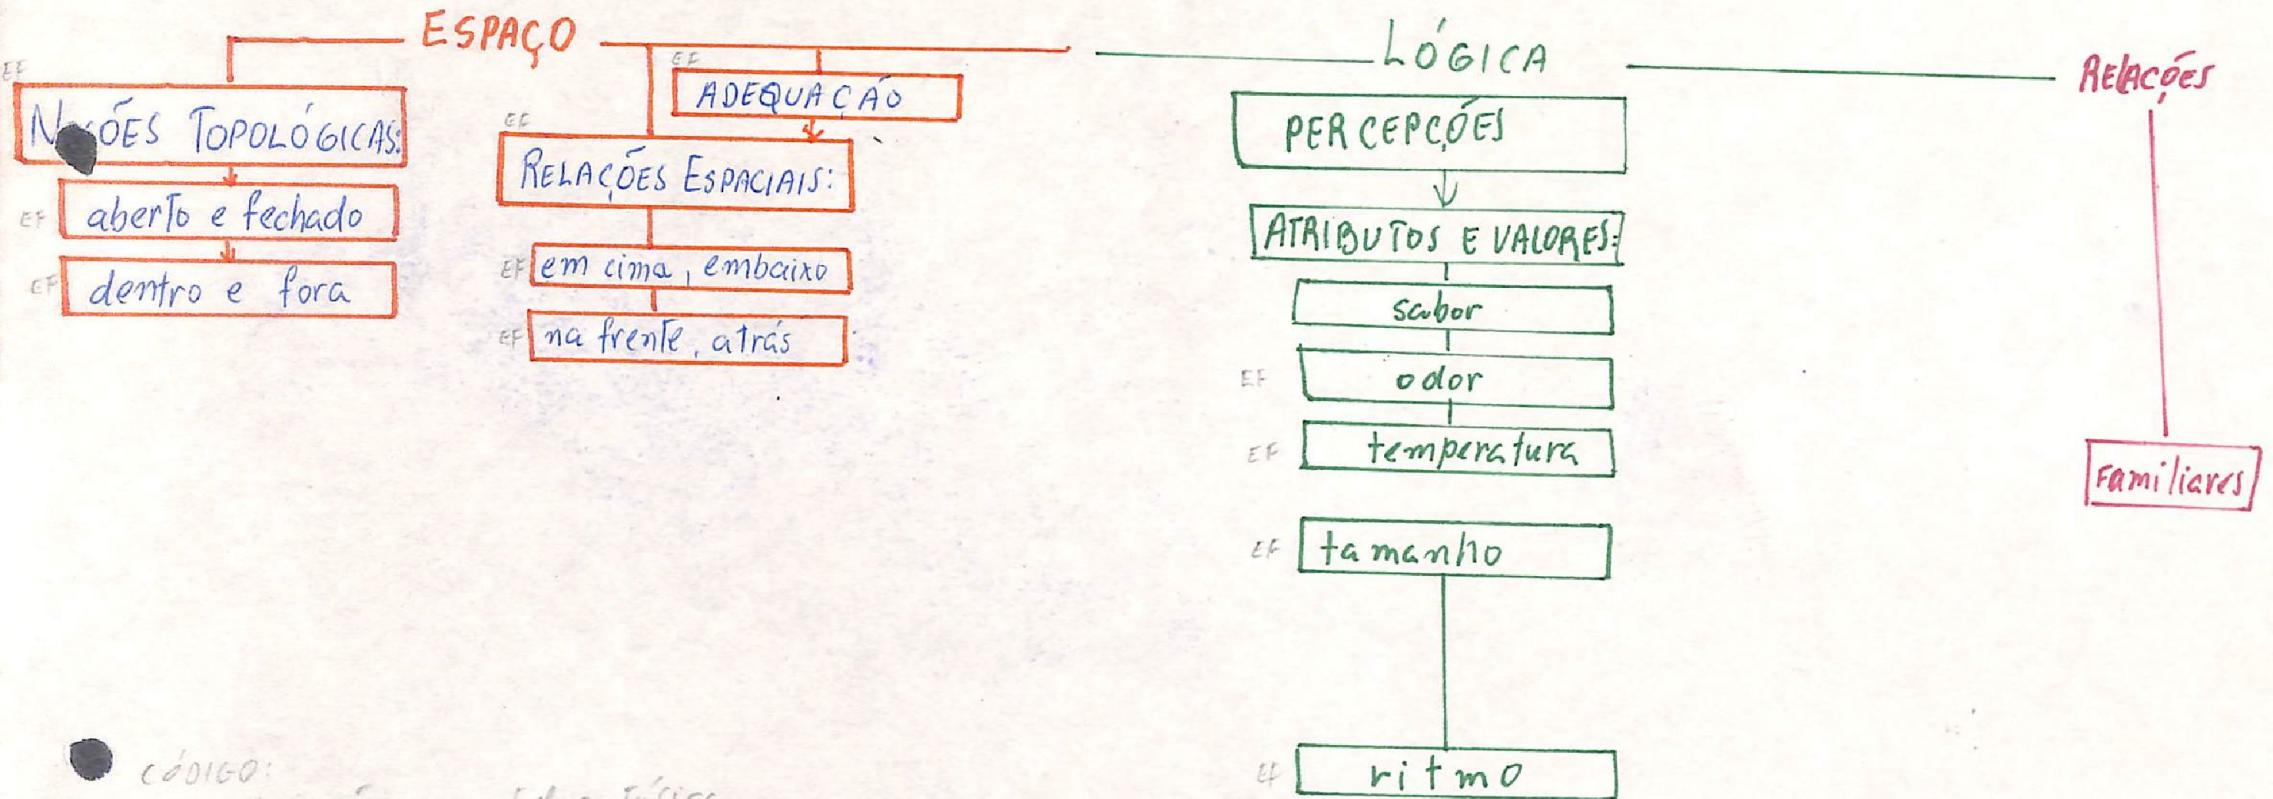 ESPAÇO
EF
NOÇÕES TOPOLÓGICAS:
EF aberto e fechado
EF dentro e fora
EF
ADEQUAÇÃO
EF
RELAÇÕES ESPACIAIS:
EF em cima, embaixo
EF na frente, atrás
LÓGICA
PERCEPÇÕES
ATRIBUTOS E VALORES:
sabor
EF odor
EF temperatura
EF tamanho
EF ritmo
RELAÇÕES
Familiares
CÓDIGO: